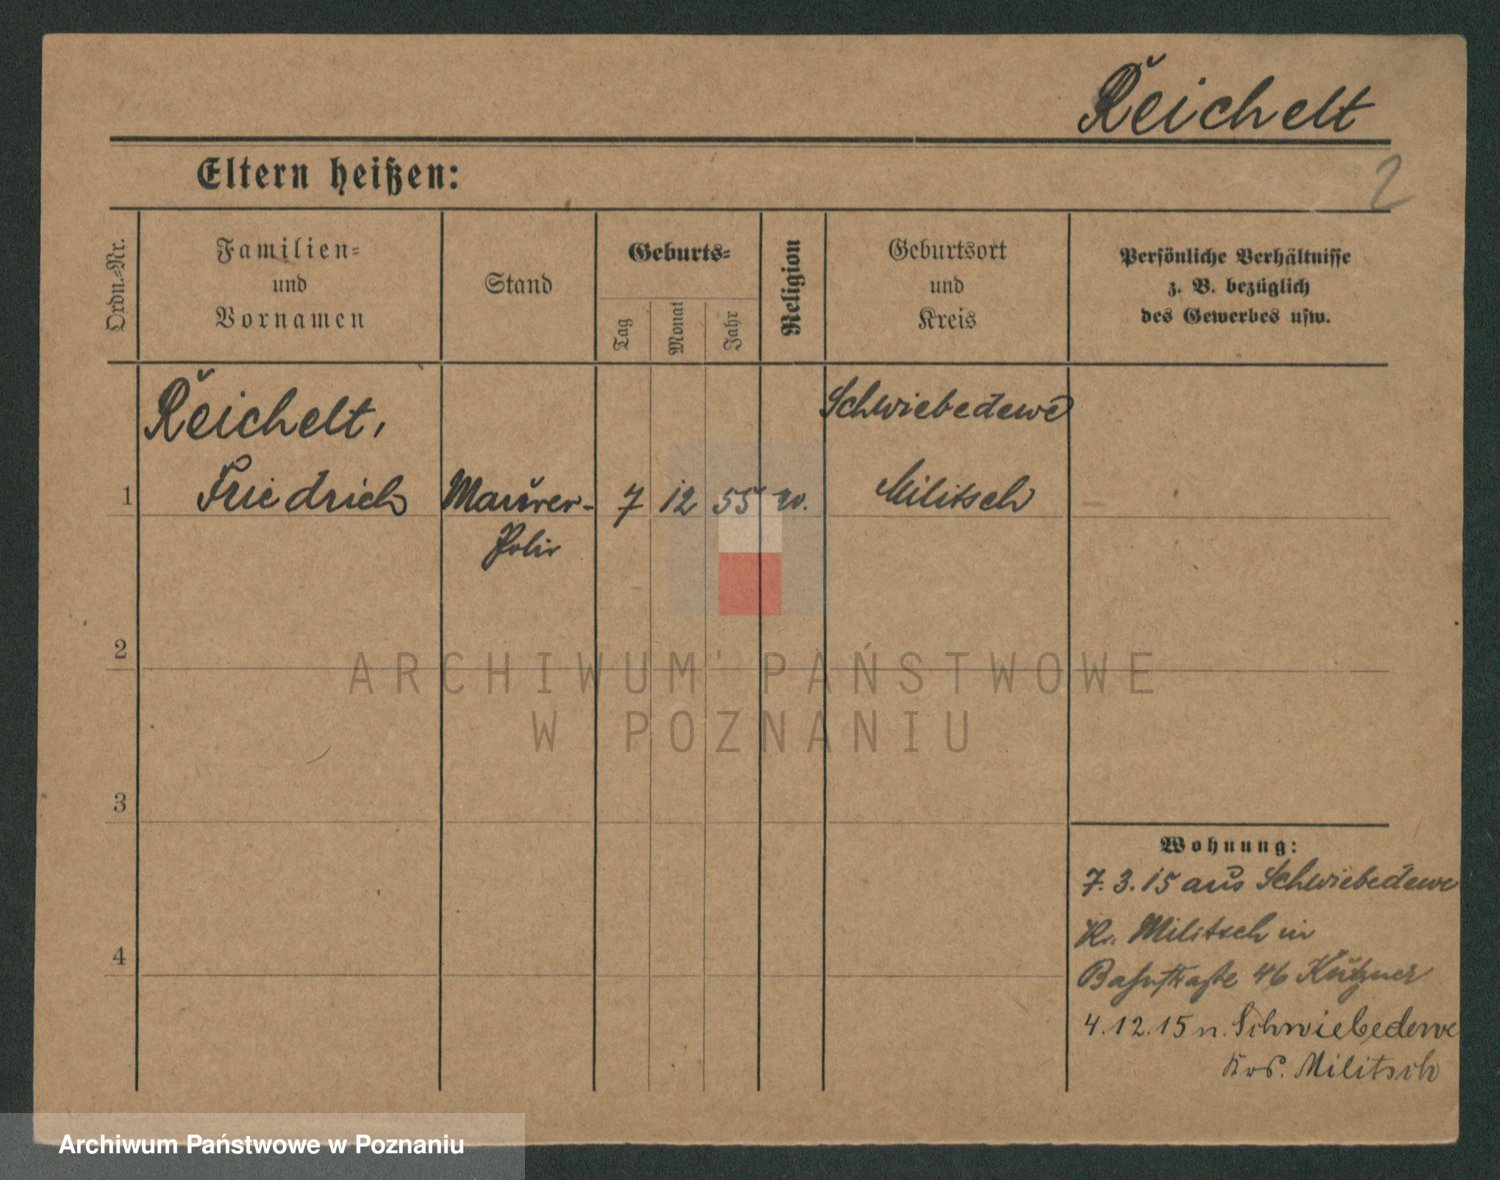 Reichelt
2
Eltern heißen:
Ordn.-Nr.
Familien-
und
Vornamen
Stand
Geburts-
Tag
Monat
Jahr
Religion
Geburtsort
und
Kreis
Persönliche Verhältnisse
z. B. bezüglich
des Gewerbes usw.
Reichelt,
Schwiebedewe
1 Friedrich Maurer- 7 12 55 Militsch
Polir
2
ARCHIWUM PAŃSTWOWE
W POZNANIU
3
Wohnung:
7.3.15 aus Schwiebedewe
Kr. Militsch in
Bahnstraße 46 Kutzner
4
4.12.15 n. Schwiebedewe
Krs. Militsch
Archiwum Państwowe w Poznaniu